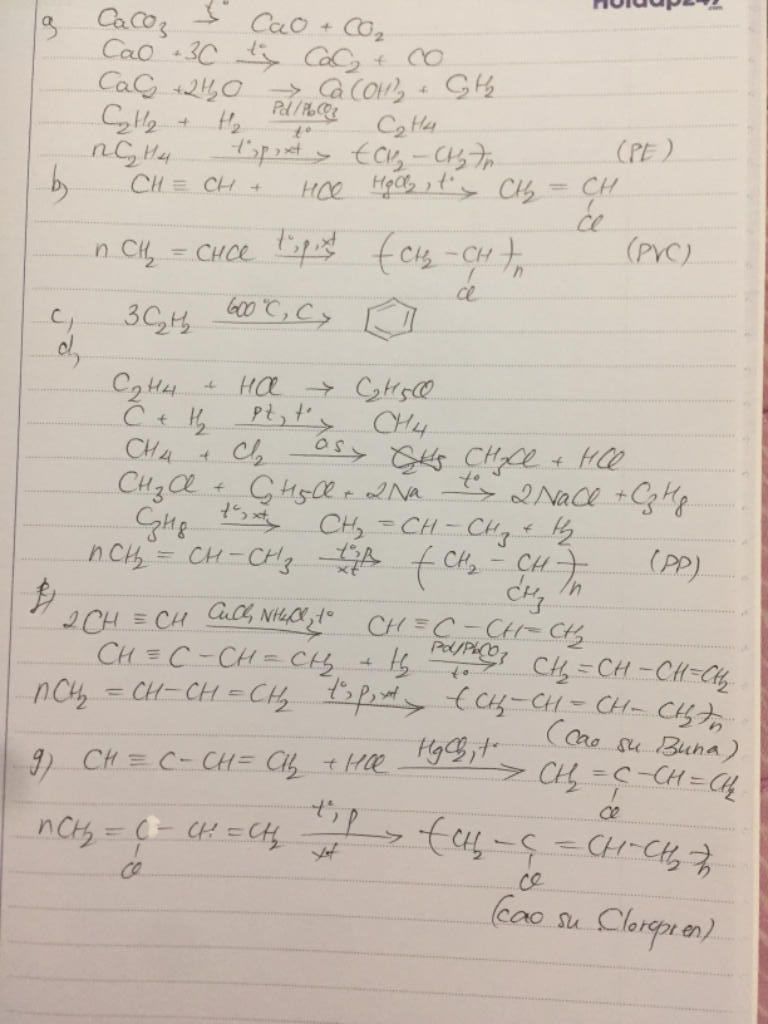 Hoidap247
a, CaCO₃ –t°→ CaO + CO₂
CaO + 3C –t°→ CaC₂ + CO
CaC₂ + 2H₂O → Ca(OH)₂ + C₂H₂
C₂H₂ + H₂ –Pd/PbCO₃, t°→ C₂H₄
nC₂H₄ –t°,p,xt→ (CH₂ – CH₂)n (PE)
b, CH ≡ CH + HCl –HgCl₂, t°→ CH₂ = CH
Cl
n CH₂ = CHCl –t°,p,xt→ (CH₂ – CH)n (PVC)
Cl
c, 3C₂H₂ –600°C, C→
d,
C₂H₄ + HCl → C₂H₅Cl
C + H₂ –pt, t°→ CH₄
CH₄ + Cl₂ –as→ CH₃Cl + HCl
CH₃Cl + C₂H₅Cl + 2Na –t°→ 2NaCl + C₃H₈
C₃H₈ –t°,xt→ CH₂ = CH – CH₃ + H₂
nCH₂ = CH – CH₃ –t°,p, xt→ (CH₂ – CH)n (PP)
CH₃
f, 2CH ≡ CH –CuCl, NH₄Cl, t°→ CH ≡ C – CH = CH₂
CH ≡ C – CH = CH₂ + H₂ –Pd/PbCO₃, t°→ CH₂ = CH – CH = CH₂
nCH₂ = CH – CH = CH₂ –t°,p,xt→ (CH₂ – CH = CH – CH₂)n
(cao su Buna)
g) CH ≡ C – CH = CH₂ + HCl –HgCl₂, t°→ CH₂ = C – CH = CH₂
Cl
nCH₂ = C – CH = CH₂ –t°, p, xt→ (CH₂ – C = CH – CH₂)n
Cl Cl
(cao su Clorepren)